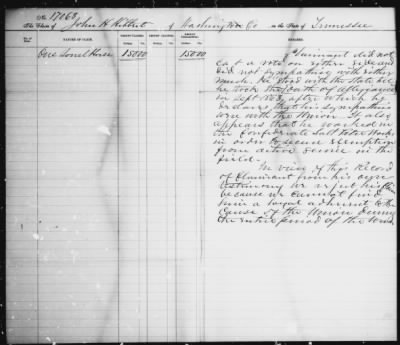 No. 17063
The Claim of John H. of Washington Co in the State of Tennessee
NATURE OF CLAIM. AMOUNT CLAIMED. AMOUNT ALLOWED. AMOUNT DISALLOWED. REMARKS.
One Sorrel Horse 150 00 150 00
Claimant did not
cast a vote on either side and
did not sympathise with either
much. He stood with the State till
he took the Oath of Allegiance
in Sept 1863, after which he
declares that his sympathies
were with the Union. It also
appears that he worked in
the Confederate Salt Works
in order to secure exemption
from active service in the
field.
In view of this Record
of Claimant from his own
testimony we reject his
because we cannot find
him a loyal adherent to the
Cause of the Union during
the entire period of the War.